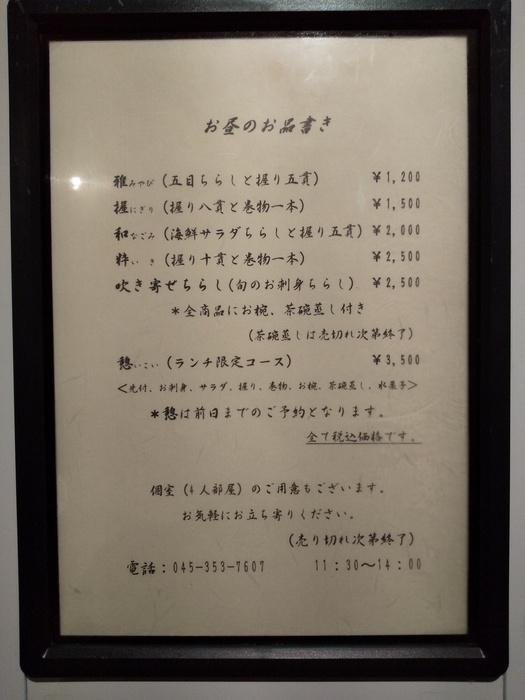 お昼のお品書き
雅みやび (五目ちらしと握り五貫) ￥1,200
握にぎり (握り八貫と巻物一本) ￥1,500
和なごみ (海鮮サラダちらしと握り五貫) ￥2,000
粋いき (握り十貫と巻物一本) ￥2,500
吹き寄せちらし(旬のお刺身ちらし) ￥2,500
＊全商品にお椀、茶碗蒸し付き
(茶碗蒸しは売切れ次第終了)
憩いこい (ランチ限定コース) ￥3,500
＜先付、お刺身、サラダ、握り、巻物、お椀、茶碗蒸し、水菓子＞
＊憩は前日までのご予約となります。
全て税込価格です。
個室 (4人部屋) のご用意もございます。
お気軽にお立ち寄りください。
(売り切れ次第終了)
電話：045-353-7607 11：30～14：00